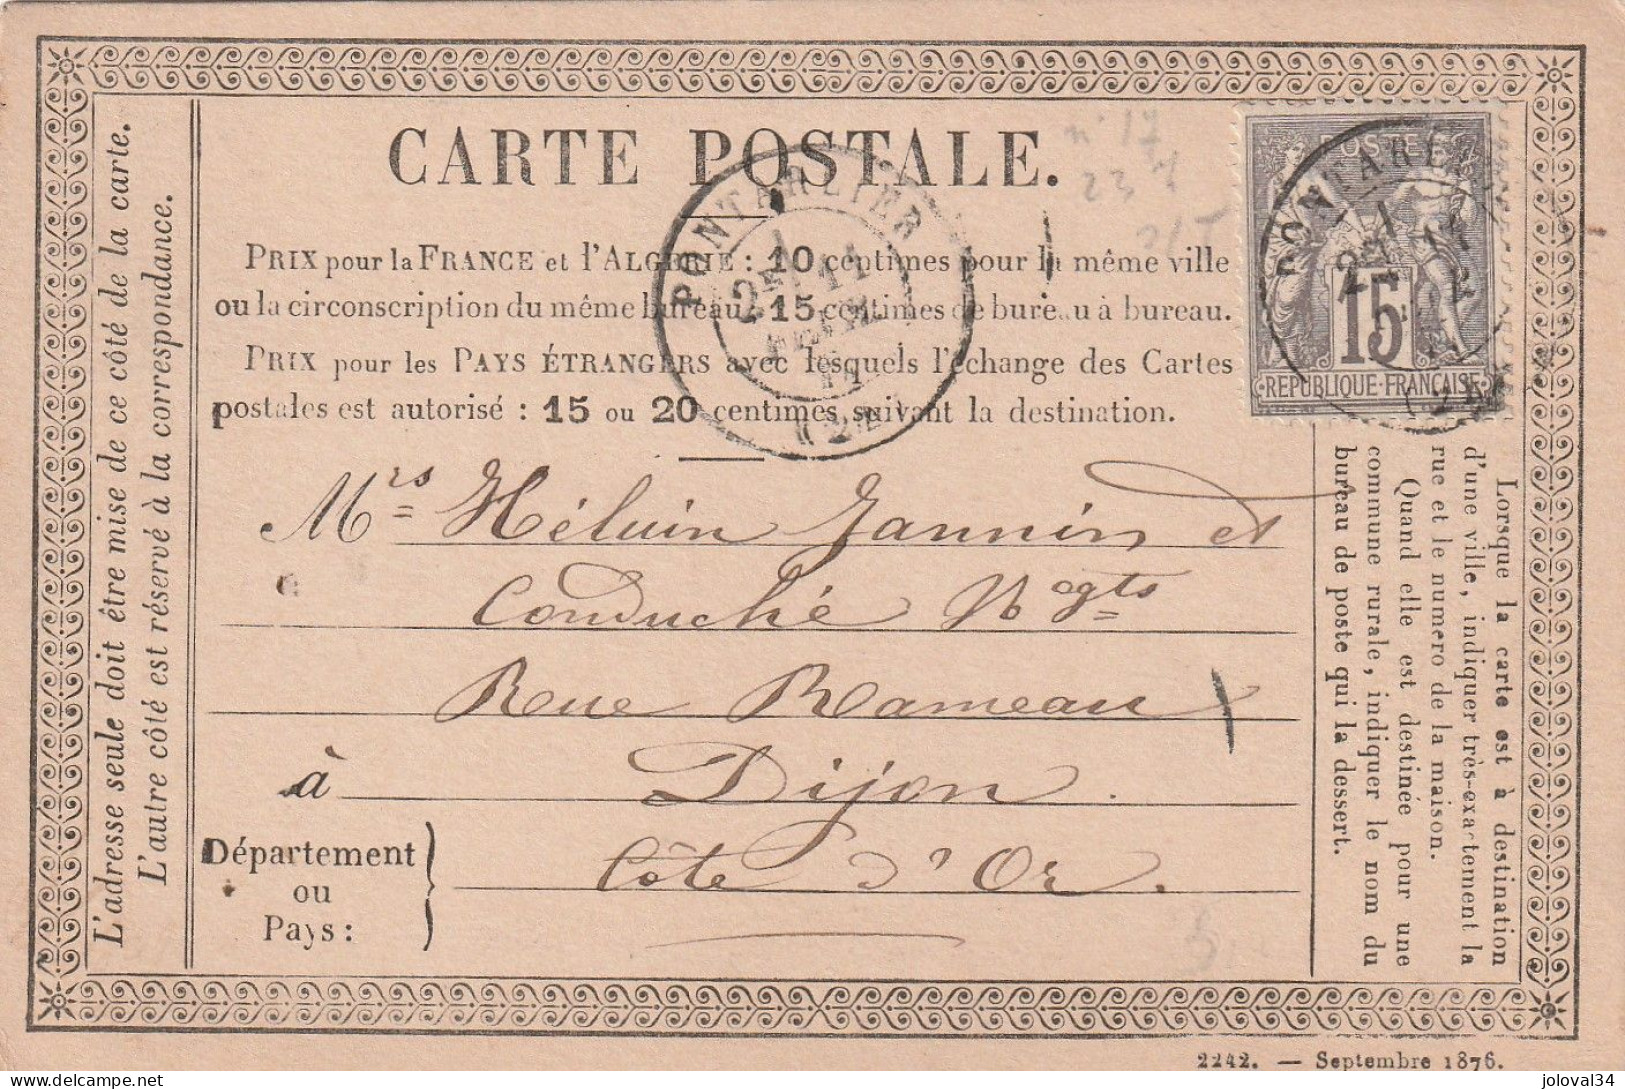 CARTE POSTALE.
PRIX pour la FRANCE et l'ALGÉRIE : 10 centimes pour la même ville
ou la circonscription du même bureau, 15 centimes de bureau à bureau.
PRIX pour les PAYS ÉTRANGERS avec lesquels l'échange des Cartes
postales est autorisé : 15 ou 20 centimes suivant la destination.
PONTARLIER
POSTE
15
REPUBLIQUE·FRANÇAISE
L'adresse seule doit être mise de ce côté de la carte.
L'autre côté est réservé à la correspondance.
Mrs Héluin Jannin et
Conduché Negts
Rue Rameau
à Dijon.
Département
ou
Pays :
Côte d'Or.
Lorsque la carte est à destination
d'une ville, indiquer très-exactement la
rue et le numero de la maison.
Quand elle est destinée pour une
commune rurale, indiquer le nom du
bureau de poste qui la dessert.
2242. — Septembre 1876.
joloval34